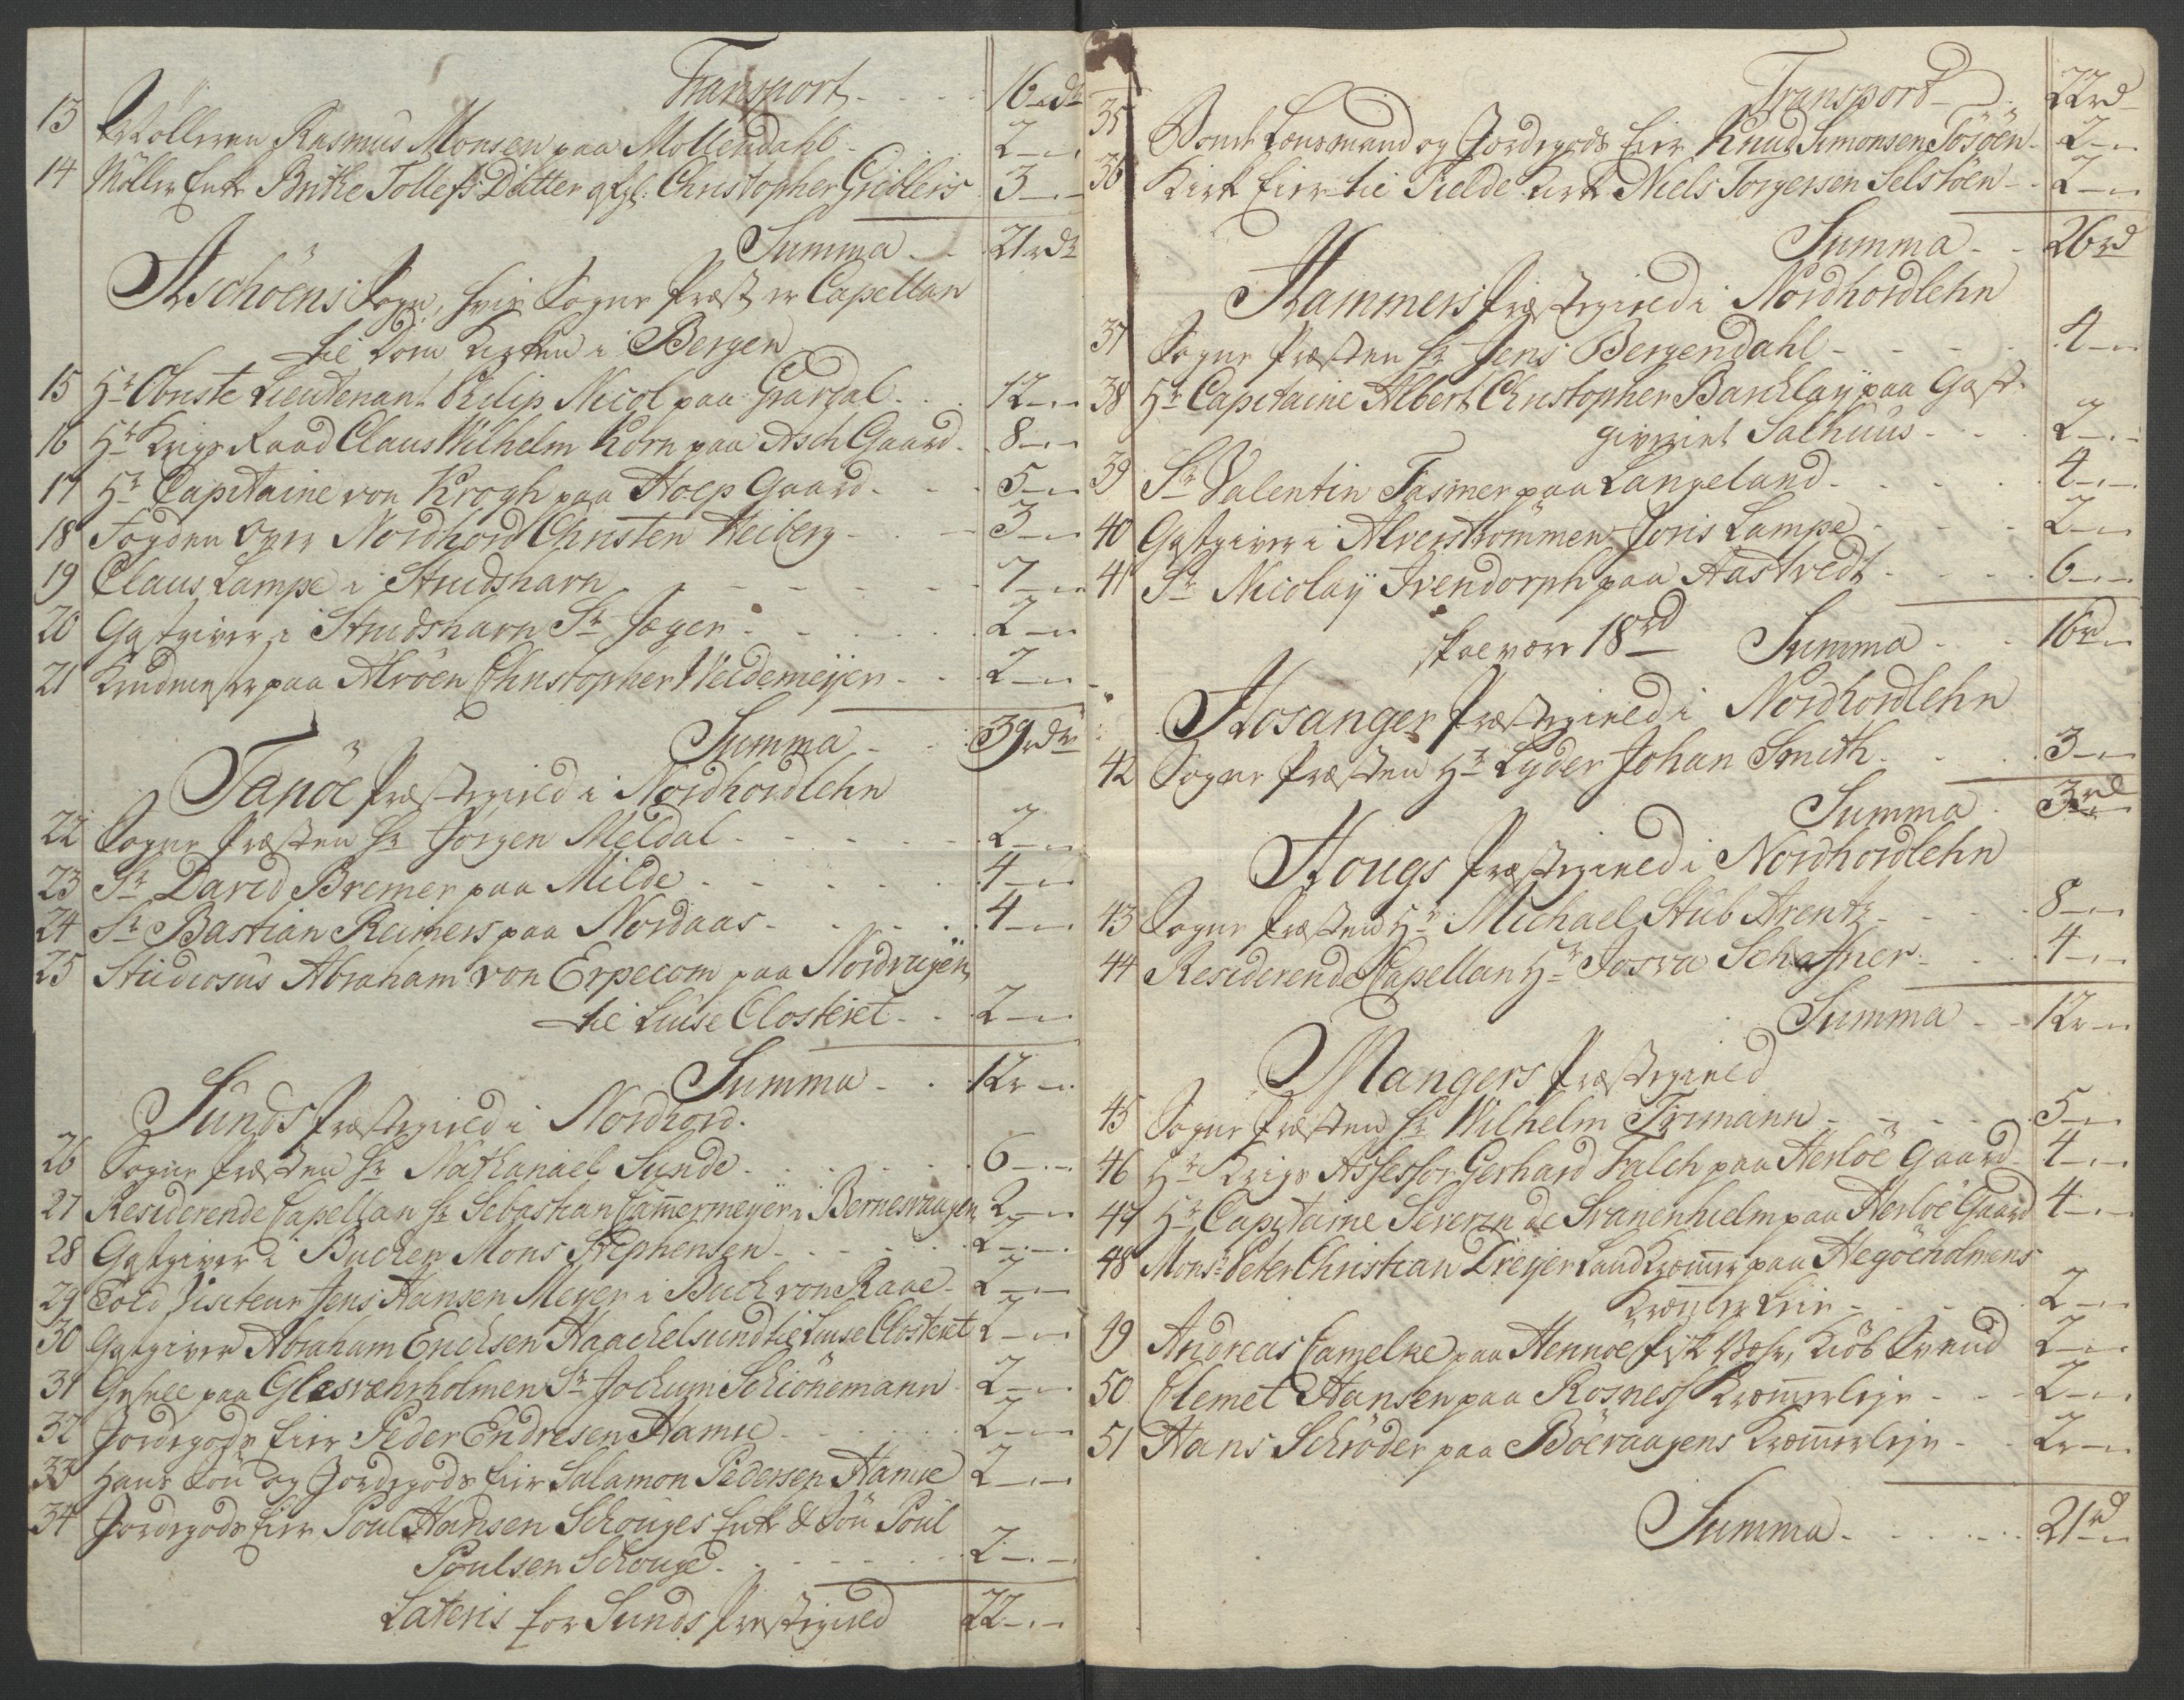 Transport - - - 16 rd
13 Mölleren Rasmus Monsen paa Möllendahl - 2 - -
14 Möller Enke Brithe Tollefs Datter afgl: Christopher Giedlers 3 - -
Summa - - 21 rdr
Aschöens Sogn, hvis Sogne Præst er Capellan
til Dom Kirken i Bergen
15 Hr Obriste Lieutenant Philip Nicol paa Gravdal - - 12 - -
16 Hr Krigs Raad Claus Wilhelm Korn paa Asch Gaard - 8 - -
17 Hr Capitaine von Krogh paa Hoep Gaard - - 5 - -
18 Fogden over Nordhord Christen Heiberg - - 3 - -
19 Claus Lampe i Strudshavn - - - - 7 - -
20 Gestgiver i Strudshavn Sr Jæger - - - 2 - -
21 Krudmester paa Alvöen Christopher Weidemeyer - - 2 - -
Summa - - 39 rdr
Fanöe Præstegield i Nordhordlehn
22 Sogne Præsten Hr Jörgen Meldal - - - 2 - -
23 Sr David Bremer paa Milde - - - 4 - -
24 Sr Bastian Reimers paa Nordaas - - - 4 - -
25 Studiosus Abraham von Erpecom paa Nordvigen
til Luise Closteret - - 2 - -
Summa - - 12 r - -
Sunds Præstegield i Nordhord.
26 Sogne Præsten Hr Nathanael Sunde - - - 6 - -
27 Residerende Capellan Hr Sebastian Cam̄ermeyer i Bernesvaagen 2 - -
28 Gestgiver i Bucken Mons Stephensen - - - 2 - -
29 Told Visiteur Jens Hansen Meyer i Buch von Raae - 2 - -
30 Gestgiver Abraham Erichsen Haackelsund til Luise Closteret 2 - -
31 paa Glesværholmen Sr Jochum Schiönemann - 2 - -
32 Jordegods Eier Peder Endresen Hamre - - - 2 - -
33 Hans Sön og Jordegods Eier Salamon Pedersen Hamre 2 - -
34 Jordegods Eier Poul Hansen Schouges Enke & Sön Poul
Poulsen Schouge - - - 2 - -
Lateris for Sunds Præstegield 22 - -
Transport - - 22 rd
35 Bonde Lensmand og Jordegods Eier Knud Simonsen Tösöen - 2 - -
36 Kirke Eier til Fielde Kirke Niels Torgersen Selstöen - - 2 - -
Summa - - 26 rd
Hammers Præstegield i Nordhordlehn
37 Sogne Præsten Hr Jens Bergendahl - - - 4 - -
38 Hr Capitaine Albert Christopher Barchlay paa Gest-
giveriet Salhuus - - 2 - -
39 Sr Valentin Fasmer paa Langeland - - - 4 - -
40 Gestgiver i Alverströmmen Joris Lampe - - 2 - -
41 Sr Nicolay Irendorph paa Aastvedt - - - 6 - -
skal være 18 rd Summa - - 16 rd
Hosanger Præstegield i Nordhordlehn
42 Sogne Præsten Hr Lyder Johan Smith - - 3 - -
Summa - 3 rd
Hougs Præstegield i Nordhordlehn
43 Sogne Præsten Hr Michael Stub Arentz - - - 8 - -
44 Residerende Capellan Hr Josva Schaffner - - 4 - -
Summa - - 12 r - -
Mangers Præstegield
45 Sogne Præsten Hr Wilhelm Tyrmann - - - 5 - -
46 Hr Krigs Assessor Gerhard Falch paa Herlöe Gaard 4 - -
47 Hr Capitaine Severin de Svanenhielm paa Herlöe Gaard 4 - -
48 Monsr Peter Christian Dreyer Land Kræm̄er paa Hegöeholmens
Kræm̄er Leie - - - 2 - -
49 Andreas Camelke paa Hennöe Fiske Vær, Kiöb Svend 2 - -
50 Clemet Hansen paa Rosness Kræm̄erleje - - 2 - -
51 Hans Schröder paa Böevaagens Kræm̄erleje - - 2 r - -
Summa - - - 21 rd